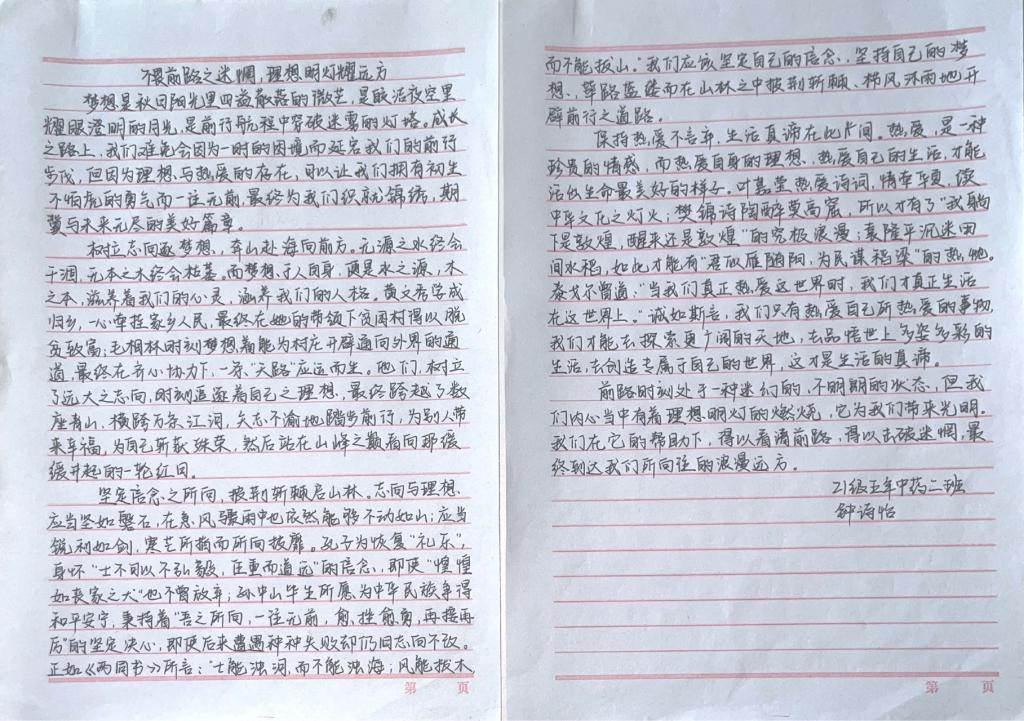 不畏前路之迷惘，理想明灯耀远方
梦想是秋日阳光里四溢散落的微芒，是皎洁夜空里
耀眼澄明的月光，是前行航程中穿破迷雾的灯塔。成长
之路上，我们难免会因为一时的困境而延宕我们的前行
步伐，但因为理想与热爱的存在，可以让我们拥有初生
不怕虎的勇气而一往无前，最终为我们织就锦绣，期
冀与未来无尽的美好篇章。
树立志向逐梦想，奔山赴海向前方。无源之水终会
干涸，无本之木终会枯萎，而梦想于人自身，便是水之源，木
之本，滋养着我们的心灵，涵养我们的人格。黄文秀学成
归乡，一心牵挂家乡人民，最终在她的带领下贫困村得以脱
贫致富；毛相林时刻梦想着能为村庄开辟通向外界的通
道，最终在齐心协力下，一条“天路”应运而生。他们，树立
了远大之志向，时刻追逐着自己之理想，最终跨越了数
座青山，横跨万条江河，矢志不渝地踏步前行，为别人带
来幸福，为自己斩获殊荣，然后站在山峰之巅看向那缓
缓升起的一轮红日。
坚定信念之所向，披荆斩棘启山林。志向与理想，
应当坚如磐石，在急风骤雨中也依然能够不动如山；应当
锐利如剑，寒芒所指而所向披靡。孔子为恢复“礼乐”，
身怀“士不可以不弘毅，任重而道远”的信念，即便“惶惶
如丧家之犬”也不曾放弃；孙中山毕生所愿为中华民族争得
和平安宁，秉持着“吾之所向，一往无前，愈挫愈勇，再接再
厉”的坚定决心，即便后来遭遇种种失败却仍旧志向不改。
正如《两同书》所言：“士能浊河，而不能浊海；风能拔木，
而不能拔山。”我们应该坚定自己的信念，坚持自己的梦
想，筚路蓝缕而在山林之中披荆斩棘、栉风沐雨地开
辟前行之道路。
保持热爱不言弃，生活真谛在此间。热爱，是一种
珍贵的情感，而热爱自身的理想、热爱自己的生活，才能
活出生命最美好的样子。叶嘉莹热爱诗词，情牵华夏，傍
中华文化之灯火；樊锦诗陶醉莫高窟，所以才有了“我躺
下是敦煌，醒来还是敦煌”的究极浪漫；袁隆平沉迷田
间水稻，如此才能有“君似雁随阳，为民谋稻粱”的热忱。
泰戈尔曾道：“当我们真正热爱这世界时，我们才真正生活
在这世界上。”诚如斯言，我们只有热爱自己所热爱的事物，
我们才能去探索更广阔的天地，去品悟世上多姿多彩的
生活，去创造专属于自己的世界，这才是生活的真谛。
前路时刻处于一种迷幻的、不明朗的状态，但我
们内心当中有着理想明灯的燃烧，它为我们带来光明。
我们在它的帮助下，得以看清前路，得以去破迷惘，最
终到达我们所向往的浪漫远方。
21级五年中药二班
钟诗怡
第 页
第 页